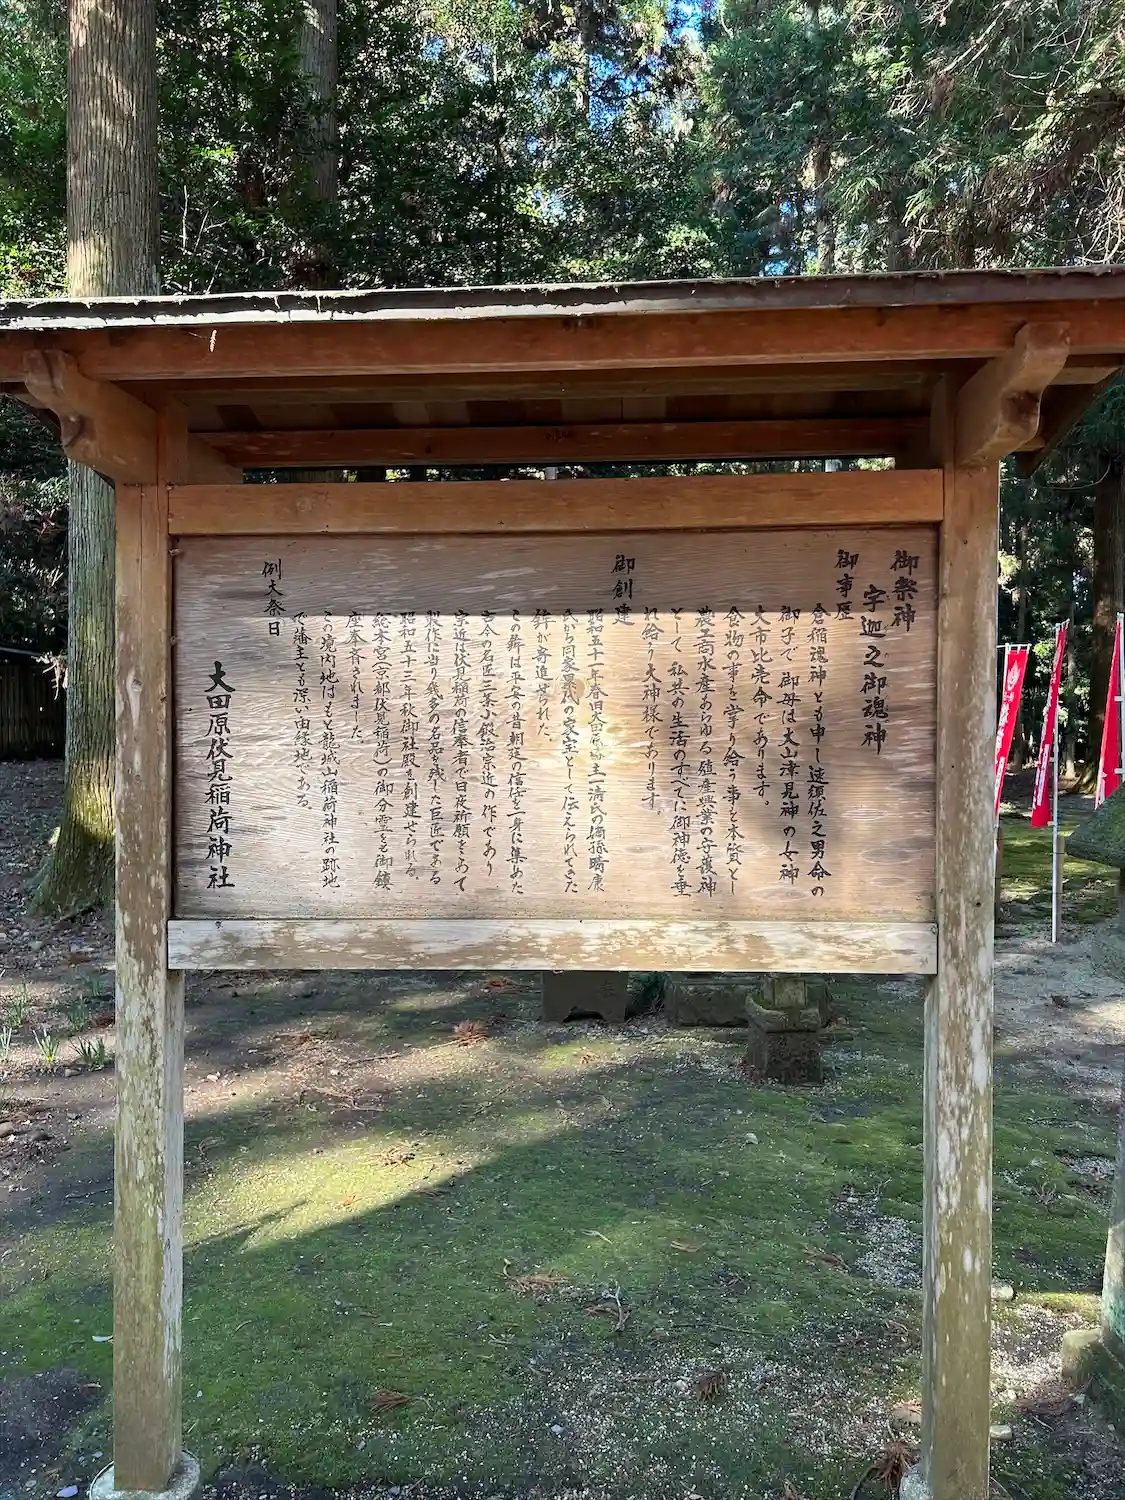 御祭神
宇迦之御魂神
御事歴
倉稲魂神とも申し速須佐之男命の
御子で御母は大山津見神の女神
大市比売命であります。
食物の事を掌り給う事を本質とし
農工商水産あらゆる殖産興業の守護神
として私共の生活のすべてに御神徳を垂
れ給う大神様であります。
御創建
昭和五十一年春旧大田原城主一清氏の嫡孫 康
氏から同家累代の家宝として伝えられてきた
鉾が寄進せられた。
この鉾は平安の昔朝廷の信任を一身に集めた
古今の名匠三条小鍛治宗近の作であり
宗近は伏見稲荷の信奉者で日夜祈願をあて
製作に当り幾多の名品を残した巨匠である
昭和五十三年秋御社殿を創建せられる
総本宮(京都伏見稲荷)の御分霊を御鎮
座奉斉されました。
この境内地はもと龍城山稲荷神社の跡地
で藩主とも深い由縁地である。
例大祭日
大田原伏見稲荷神社